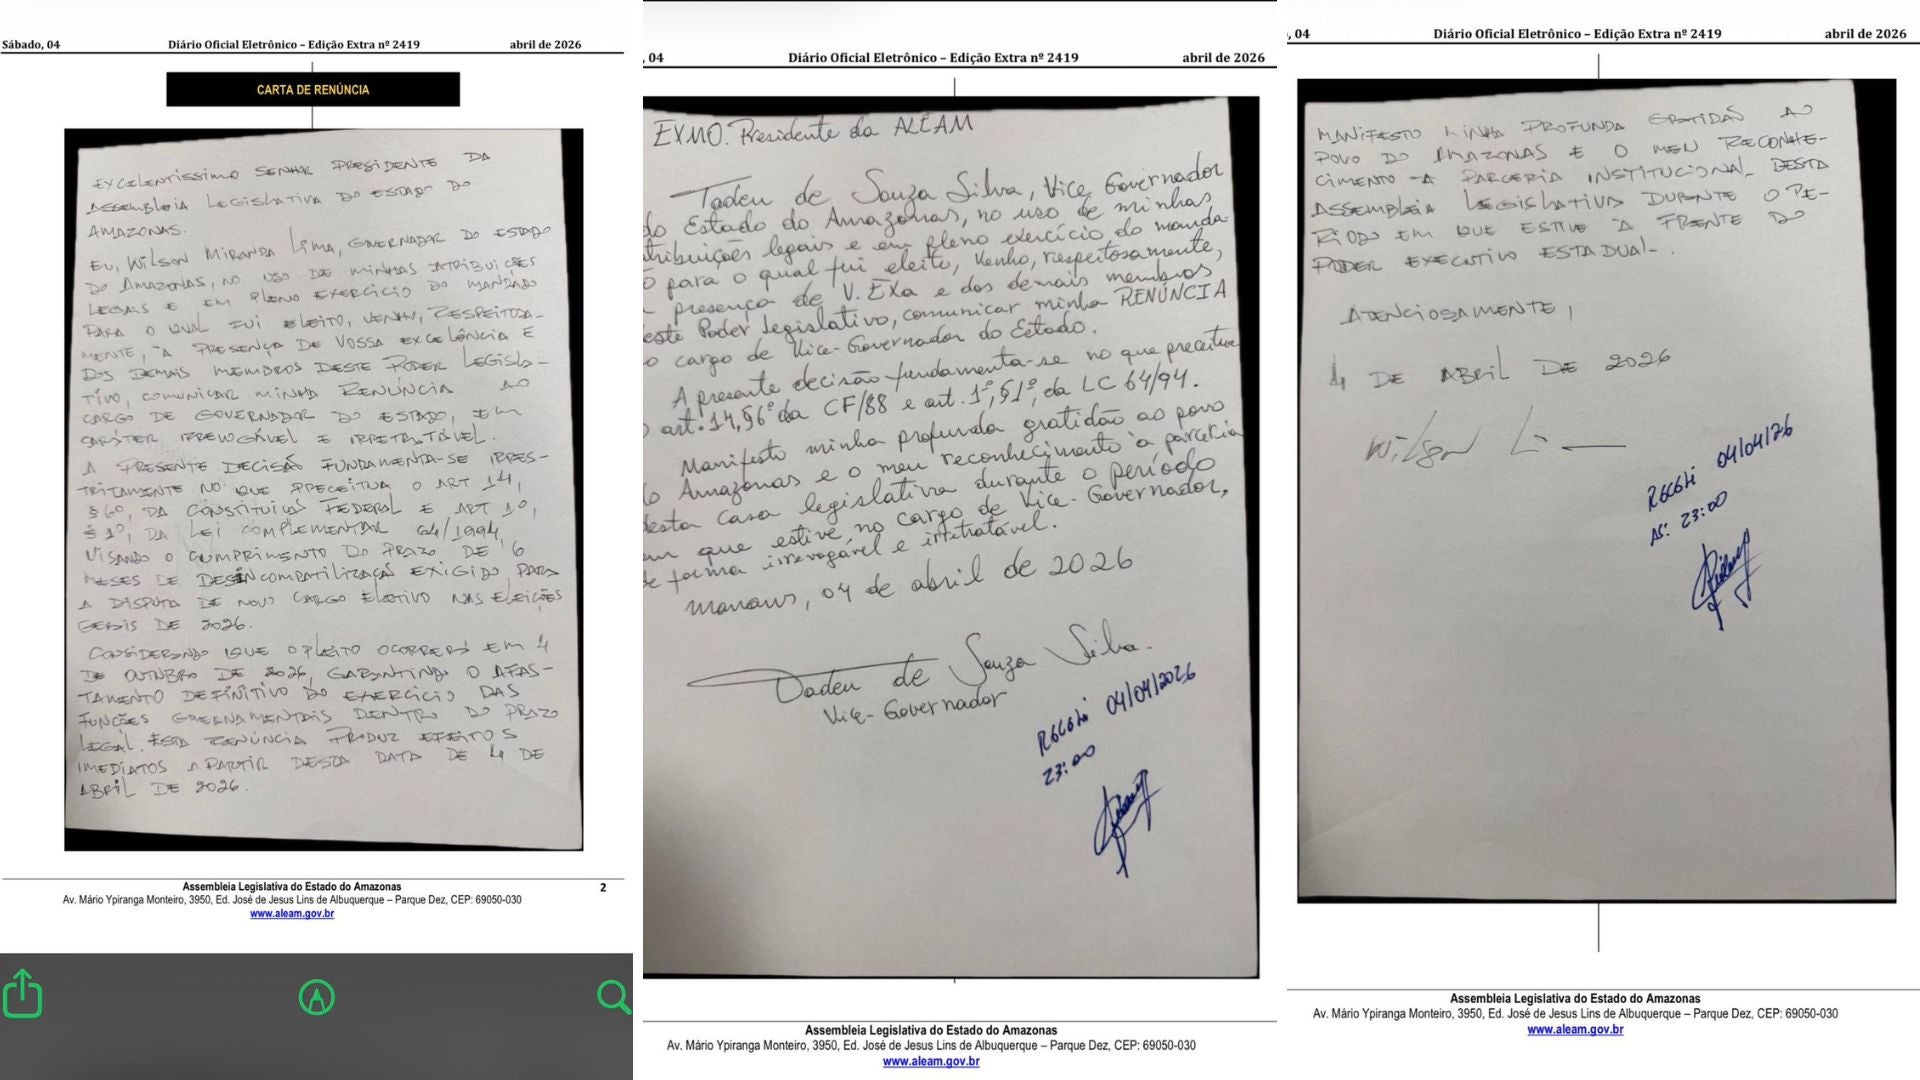 Sábado, 04 Diário Oficial Eletrônico – Edição Extra nº 2419 abril de 2026
CARTA DE RENÚNCIA
EXCELENTÍSSIMO SENHOR PRESIDENTE DA
ASSEMBLEIA LEGISLATIVA DO ESTADO DO
AMAZONAS.
EU, WILSON MIRANDA LIMA, GOVERNADOR DO ESTADO
DO AMAZONAS, NO USO DE MINHAS ATRIBUIÇÕES
LEGAIS E EM PLENO EXERCÍCIO DO MANDADO
PARA O QUAL FUI ELEITO, VENHO, RESPEITOSA-
MENTE, À PRESENÇA DE VOSSA EXCELÊNCIA E
DOS DEMAIS MEMBROS DESTE PODER LEGISLA-
TIVO, COMUNICAR MINHA RENÚNCIA AO
CARGO DE GOVERNADOR DO ESTADO, EM
CARÁTER IRREVOGÁVEL E IRRETRATÁVEL.
A PRESENTE DECISÃO FUNDAMENTA-SE IRRES-
TRITAMENTE NO QUE PRECEITUA O ART 14,
§ 6º, DA CONSTITUIÇÃO FEDERAL E ART 1º,
§ 1º, DA LEI COMPLEMENTAR 64/1994,
VISANDO O CUMPRIMENTO DO PRAZO DE 6
MESES DE DESINCOMPATILIZAÇÃO EXIGIDO PARA
A DISPUTA DE NOVO CARGO ELETIVO NAS ELEIÇÕES
GERAIS DE 2026.
CONSIDERANDO QUE O PLEITO OCORRERÁ EM 4
DE OUTUBRO DE 2026, GARANTINDO O AFAS-
TAMENTO DEFINITIVO DO EXERCÍCIO DAS
FUNÇÕES GOVERNAMENTAIS DENTRO DO PRAZO
LEGAL. ESTA RENÚNCIA PRODUZ EFEITOS
IMEDIATOS A PARTIR DESTA DATA DE 4 DE
ABRIL DE 2026.
Assembleia Legislativa do Estado do Amazonas 2
Av. Mário Ypiranga Monteiro, 3950, Ed. José de Jesus Lins de Albuquerque – Parque Dez, CEP: 69050-030
www.aleam.gov.br
, 04 Diário Oficial Eletrônico – Edição Extra nº 2419 abril de 2026
EXMO. Presidente da ALEAM
Tadeu de Souza Silva, Vice Governador
do Estado do Amazonas, no uso de minhas
tribuições legais e em pleno exercício do manda
o para o qual fui eleito, venho, respeitosamente,
presença de V. EXa e dos demais membros
este Poder legislativo, comunicar minha RENÚNCIA
o cargo de Vice-Governador do Estado.
A presente decisão fundamenta-se no que preceitua
o art. 14, §6º da CF/88 e art. 1º, §1º, da LC 64/94.
Manifesto minha profunda gratidão ao povo
do Amazonas e o meu reconhecimento à parceria
desta casa legislativa durante o período
em que estive no cargo de Vice-Governador,
de forma irrevogável e irretratável.
Manaus, 04 de abril de 2026
Tadeu de Souza Silva.
Vice-Governador
Recebi 04/04/2026
23:00
Assembleia Legislativa do Estado do Amazonas
Av. Mário Ypiranga Monteiro, 3950, Ed. José de Jesus Lins de Albuquerque – Parque Dez, CEP: 69050-030
www.aleam.gov.br
, 04 Diário Oficial Eletrônico – Edição Extra nº 2419 abril de 2026
MANIFESTO MINHA PROFUNDA GRATIDÃO AO
POVO DO AMAZONAS E O MEU RECONHE-
CIMENTO A PARCERIA INSTITUCIONAL DESTA
ASSEMBLEIA LEGISLATIVA DURANTE O PE-
RÍODO EM QUE ESTIVE À FRENTE DO
PODER EXECUTIVO ESTADUAL.
ATENCIOSAMENTE,
4 DE ABRIL DE 2026
Wilson Li
Recebi 04/04/26
AS: 23:00
Assembleia Legislativa do Estado do Amazonas
Av. Mário Ypiranga Monteiro, 3950, Ed. José de Jesus Lins de Albuquerque – Parque Dez, CEP: 69050-030
www.aleam.gov.br